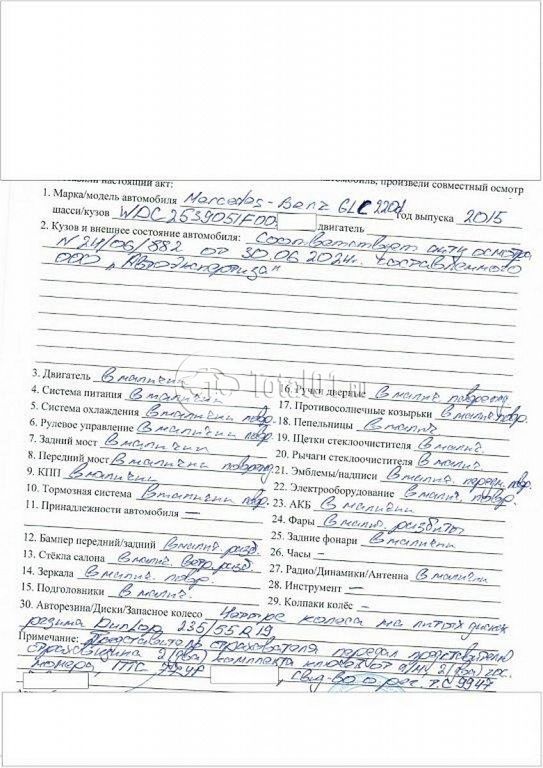 настоящий акт: автомобиль, произвели совместный осмотр
1. Марка/модель автомобиля Mercedes-Benz GLC 220d год выпуска 2015
шасси/кузов WDC2539051F00 двигатель
2. Кузов и внешнее состояние автомобиля: Соответствует акту осмотра
N 24/06/882 от 30.06.2024г. составленного
ООО „Автоэкспертиза"
3. Двигатель в наличии
4. Система питания в наличии
5. Система охлаждения в наличии повр.
6. Рулевое управление в наличии повр.
7. Задний мост в наличии
8. Передний мост в наличии
9. КПП в наличии
10. Тормозная система в наличии повр.
11. Принадлежности автомобиля —
12. Бампер передний/задний в налич. разб.
13. Стёкла салона в налич. разб
14. Зеркала в налич. повр.
15. Подголовники в налич.
16. Ручки дверные в налич.
17. Противосолнечные козырьки в налич повр.
18. Пепельницы в налич
19. Щетки стеклоочистителя в налич.
20. Рычаги стеклоочистителя в налич
21. Эмблемы/надписи в налич. передн. повр.
22. Электрооборудование в налич. повр.
23. АКБ в наличии
24. Фары в налич. разбиты
25. Задние фонари в наличии
26. Часы —
27. Радио/Динамики/Антенна в налич
28. Инструмент —
29. Колпаки колёс —
30. Авторезина/Диски/Запасное колесо Четыре колеса на литых дисках
резина Dunlop 235/55 R19
Примечание: Представитель страхователя передал представителю
страховщика 2(два) комплекта ключей от а/м, 2(два) гос.
номера, ПТС , свид-во о рег. ТС 9947
Total01.ru